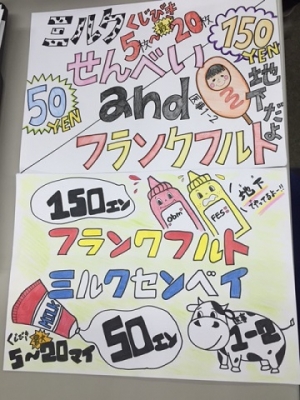 ミルク
くじびき
5枚〜最大20枚
150
YEN
せんべい
50
YEN
and
地下だよ
フランクフルト
150エン
地下
でやってるよー!!
フランクフルト
ミルクセンベイ
MILK
50エン
くじびき
5〜20マイ
1-2